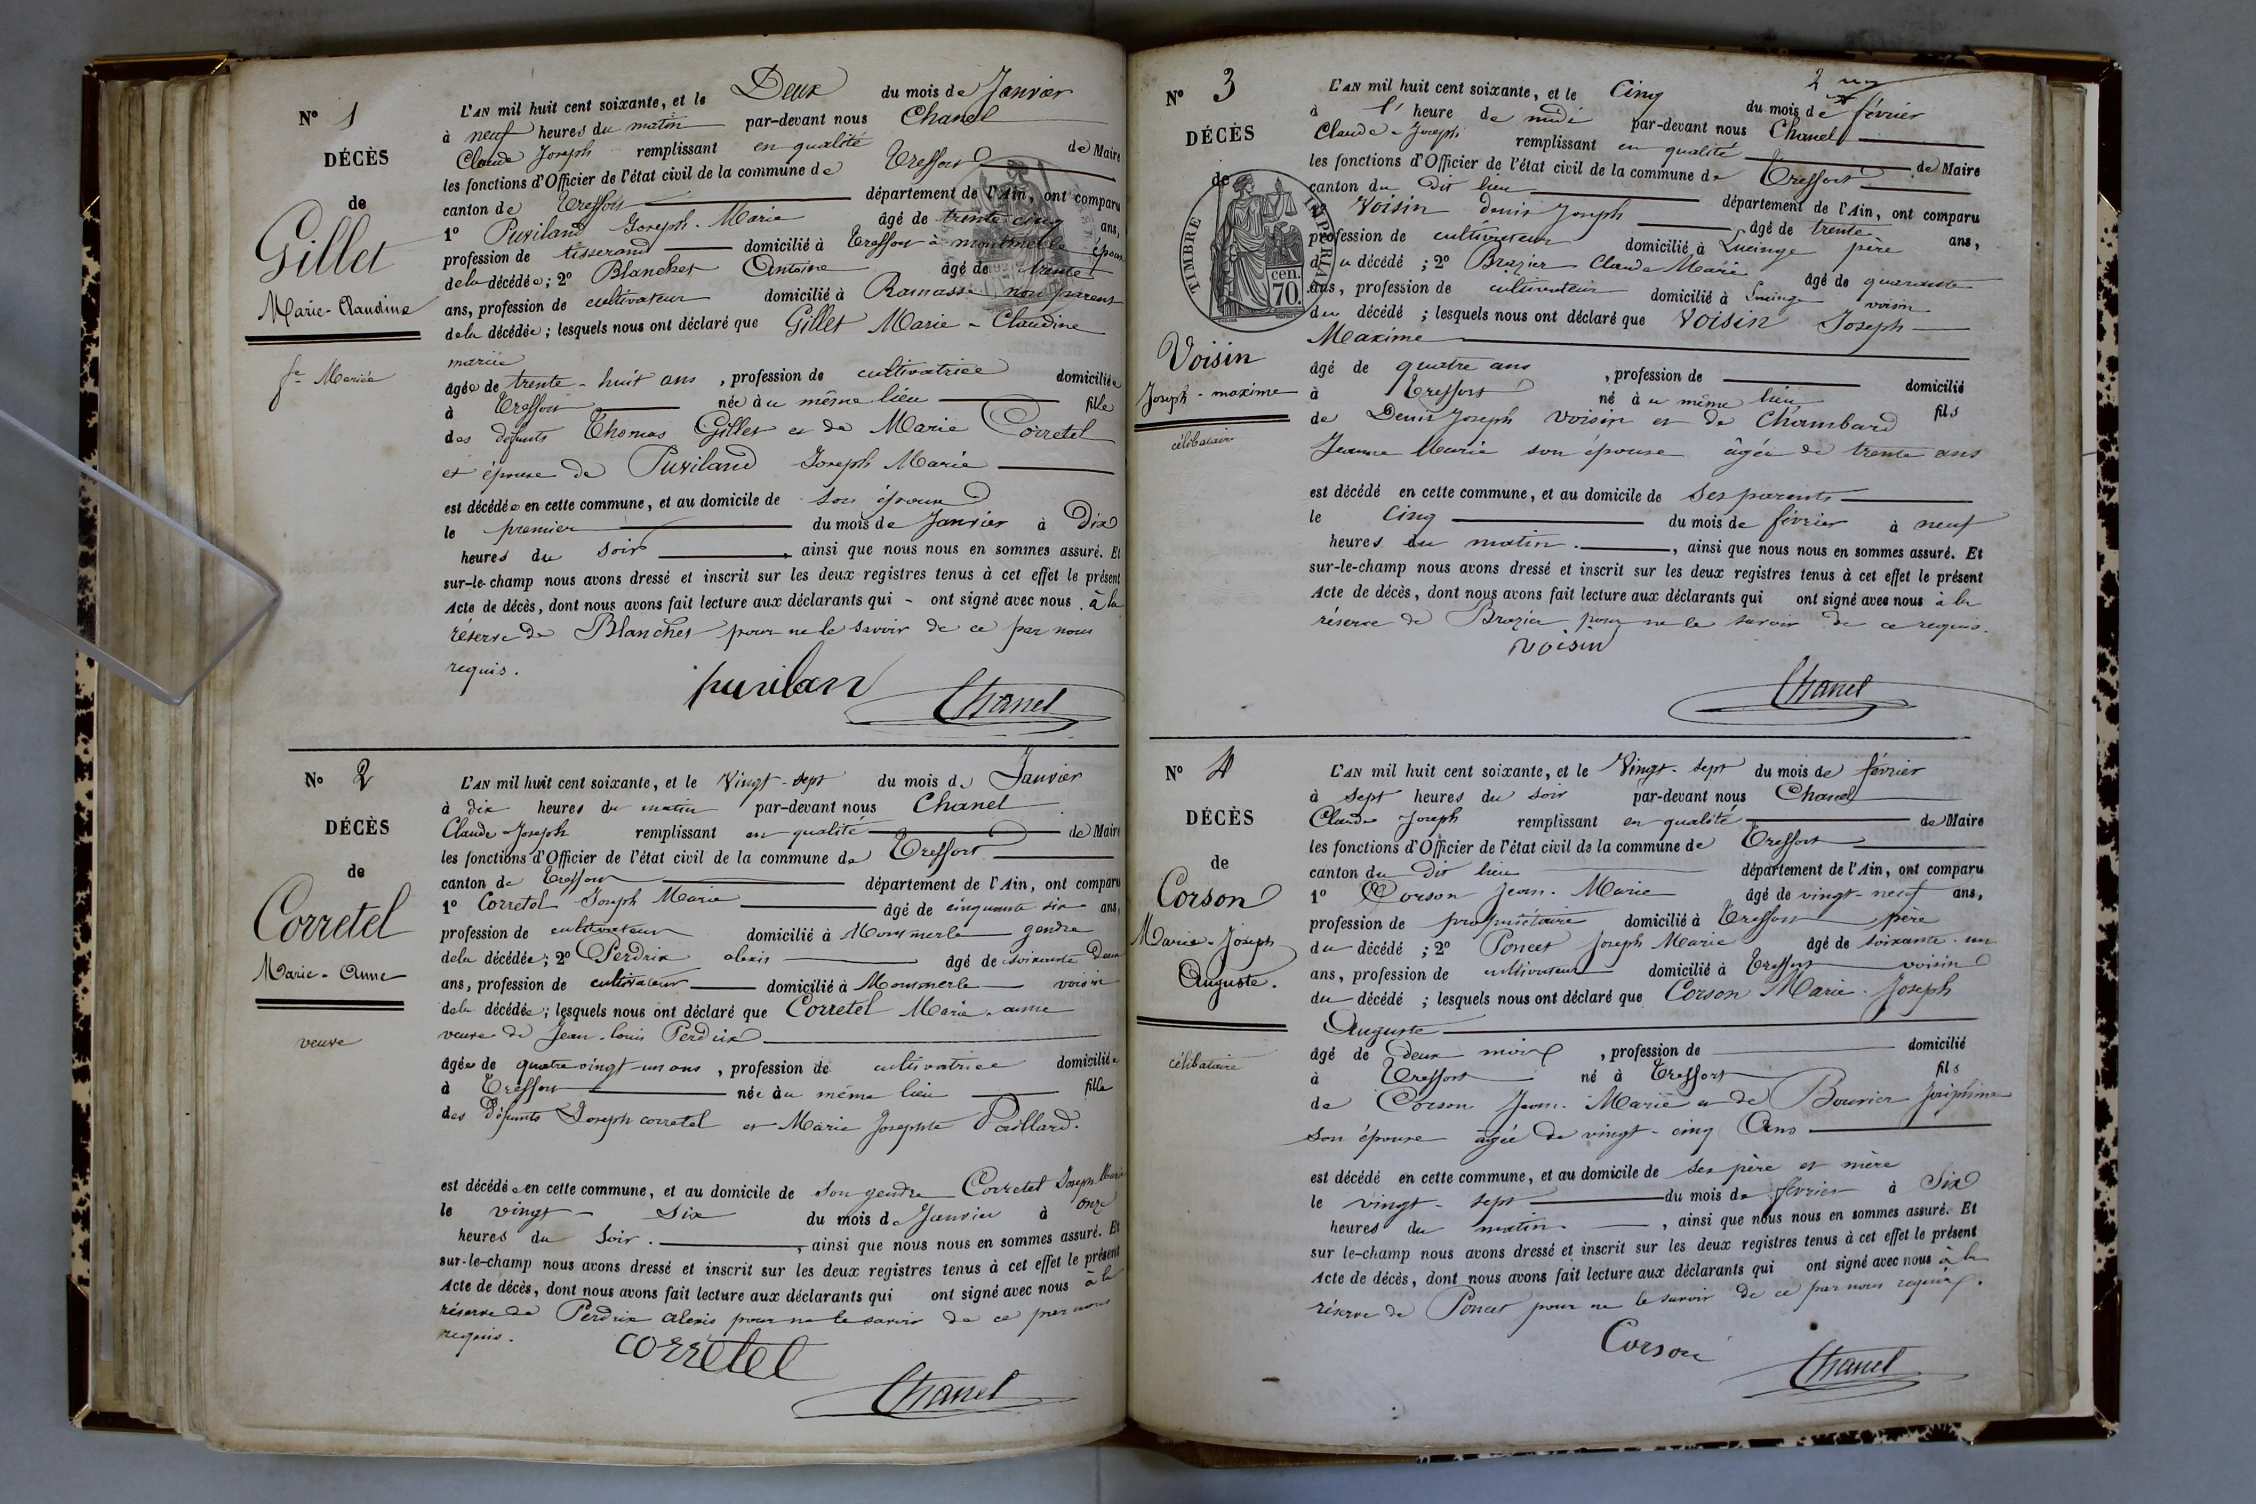 N° 1
DÉCÈS
de
Gillet
Marie-Claudine
fe Mariée
L'AN mil huit cent soixante, et le Deux du mois de Janvier
à neuf heures du matin par-devant nous Chanel
Claude Joseph remplissant en qualité de Maire
les fonctions d'Officier de l'état civil de la commune de Treffort
canton de Treffort département de l'Ain, ont comparu
1° Puviland Joseph-Marie âgé de trente cinq ans,
profession de tisserand domicilié à Treffort à montmerle époux
de la décédée ; 2° Blanchet Antoine âgé de trente
ans, profession de cultivateur domicilié à Ramasse non parent
de la décédée ; lesquels nous ont déclaré que Gillet Marie-Claudine
mariée
âgée de trente-huit ans , profession de cultivatrice domiciliée
à Treffort née à u même lieu fille
des défunts Thomas Gillet et de Marie Corretel
et épouse de Puviland Joseph Marie
est décédée en cette commune, et au domicile de son époux
le premier du mois de Janvier à Dix
heures du soir , ainsi que nous nous en sommes assuré. Et
sur-le-champ nous avons dressé et inscrit sur les deux registres tenus à cet effet le présent
Acte de décès, dont nous avons fait lecture aux déclarants qui - ont signé avec nous . à la
réserve de Blanchet pour ne le savoir de ce par nous
requis.
puvilan Chanel
N° 2
DÉCÈS
de
Corretel
Marie-Anne
veuve
L'AN mil huit cent soixante, et le Vingt-sept du mois de Janvier
à dix heures du matin par-devant nous Chanel
Claude-Joseph remplissant en qualité de Maire
les fonctions d'Officier de l'état civil de la commune de Treffort
canton de Treffort département de l'Ain, ont comparu
1° Corretel Joseph Marie âgé de cinquante six ans,
profession de cultivateur domicilié à Montmerle gendre
de la décédée ; 2° Perdrix alexis âgé de soixante Deux
ans, profession de cultivateur domicilié à Montmerle voisin
de la décédée ; lesquels nous ont déclaré que Corretel Marie-anne
veuve de Jean-louis Perdrix
âgée de quatre vingt-un ans , profession de cultivatrice domiciliée
à Treffort née à u même lieu fille
des Défunts Joseph corretel et Marie Josephte Paillard.
est décédée en cette commune, et au domicile de son gendre Corretel Joseph Marie
le vingt-Six du mois de Janvier à onze
heures du Soir. , ainsi que nous nous en sommes assuré. Et
sur-le-champ nous avons dressé et inscrit sur les deux registres tenus à cet effet le présent
Acte de décès, dont nous avons fait lecture aux déclarants qui ont signé avec nous à la
réserve de Perdrix alexis pour ne le savoir de ce par nous
requis.
corretel
Chanel
2
N° 3
DÉCÈS
de
TIMBRE IMPÉRIAL
cen.
70.
Voisin
Joseph-maxime
célibataire
L'AN mil huit cent soixante, et le Cinq du mois de février
à l' heure de midi par-devant nous Chanel
Claude-Joseph remplissant en qualité de Maire
les fonctions d'Officier de l'état civil de la commune de Treffort
canton du dit lieu département de l'Ain, ont comparu
1° Voisin denis Joseph âgé de trente ans,
profession de cultivateur domicilié à Lucinge père
d u décédé ; 2° Brazier Claude Marie âgé de quarante
ans, profession de cultivateur domicilié à Lucinge voisin
du décédé ; lesquels nous ont déclaré que Voisin Joseph
Maxime
âgé de quatre ans , profession de domicilié
à Treffort né à u même lieu fils
de Denis Joseph Voisin et de Chambard
Jeanne Marie son épouse âgée de trente ans
est décédé en cette commune, et au domicile de ses parents
le Cinq du mois de février à neuf
heures du matin. , ainsi que nous nous en sommes assuré. Et
sur-le-champ nous avons dressé et inscrit sur les deux registres tenus à cet effet le présent
Acte de décès, dont nous avons fait lecture aux déclarants qui ont signé avec nous à la
réserve de Brazier pour ne le savoir de ce requis.
voisin
Chanel
N° 4
DÉCÈS
de
Corson
Marie-Joseph
Auguste.
célibataire
L'AN mil huit cent soixante, et le Vingt-sept du mois de février
à sept heures du soir par-devant nous Chanel
Claude Joseph remplissant en qualité de Maire
les fonctions d'Officier de l'état civil de la commune de Treffort
canton du Dit lieu département de l'Ain, ont comparu
1° Corson Jean-Marie âgé de vingt-neuf ans,
profession de propriétaire domicilié à Treffort père
du décédé ; 2° Poncet Joseph Marie âgé de soixante-un
ans, profession de cultivateur domicilié à Treffort voisin
du décédé ; lesquels nous ont déclaré que Corson Marie-Joseph
Auguste
âgé de deux mois , profession de domicilié
à Treffort né à Treffort fils
de Corson Jean-Marie et de Bouvier Joséphine
son épouse âgée de vingt-cinq Ans
est décédé en cette commune, et au domicile de ses père et mère
le vingt-sept du mois de février à Six
heures du matin , ainsi que nous nous en sommes assuré. Et
sur le-champ nous avons dressé et inscrit sur les deux registres tenus à cet effet le présent
Acte de décès, dont nous avons fait lecture aux déclarants qui ont signé avec nous à la
réserve de Poncet pour ne le savoir de ce par nous requis.
Corson
Chanel